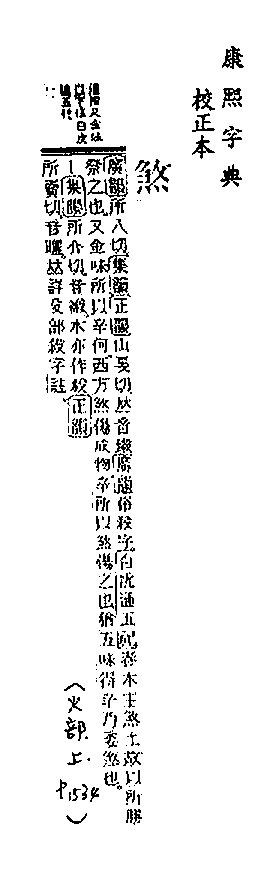 康熙字典
校正本
煞
廣韻所八切集韻正韻山戛切𠀤音殺廣韻俗殺字白虎通五祀春木王煞土故以所勝
祭之也又金味所以辛何西方煞傷成物辛所以煞傷之也猶五味得辛乃委煞也
集韻所介切音
本亦作殺正韻
所賣切音曬𠀤詳殳部殺字註
(火部上.
P1534)